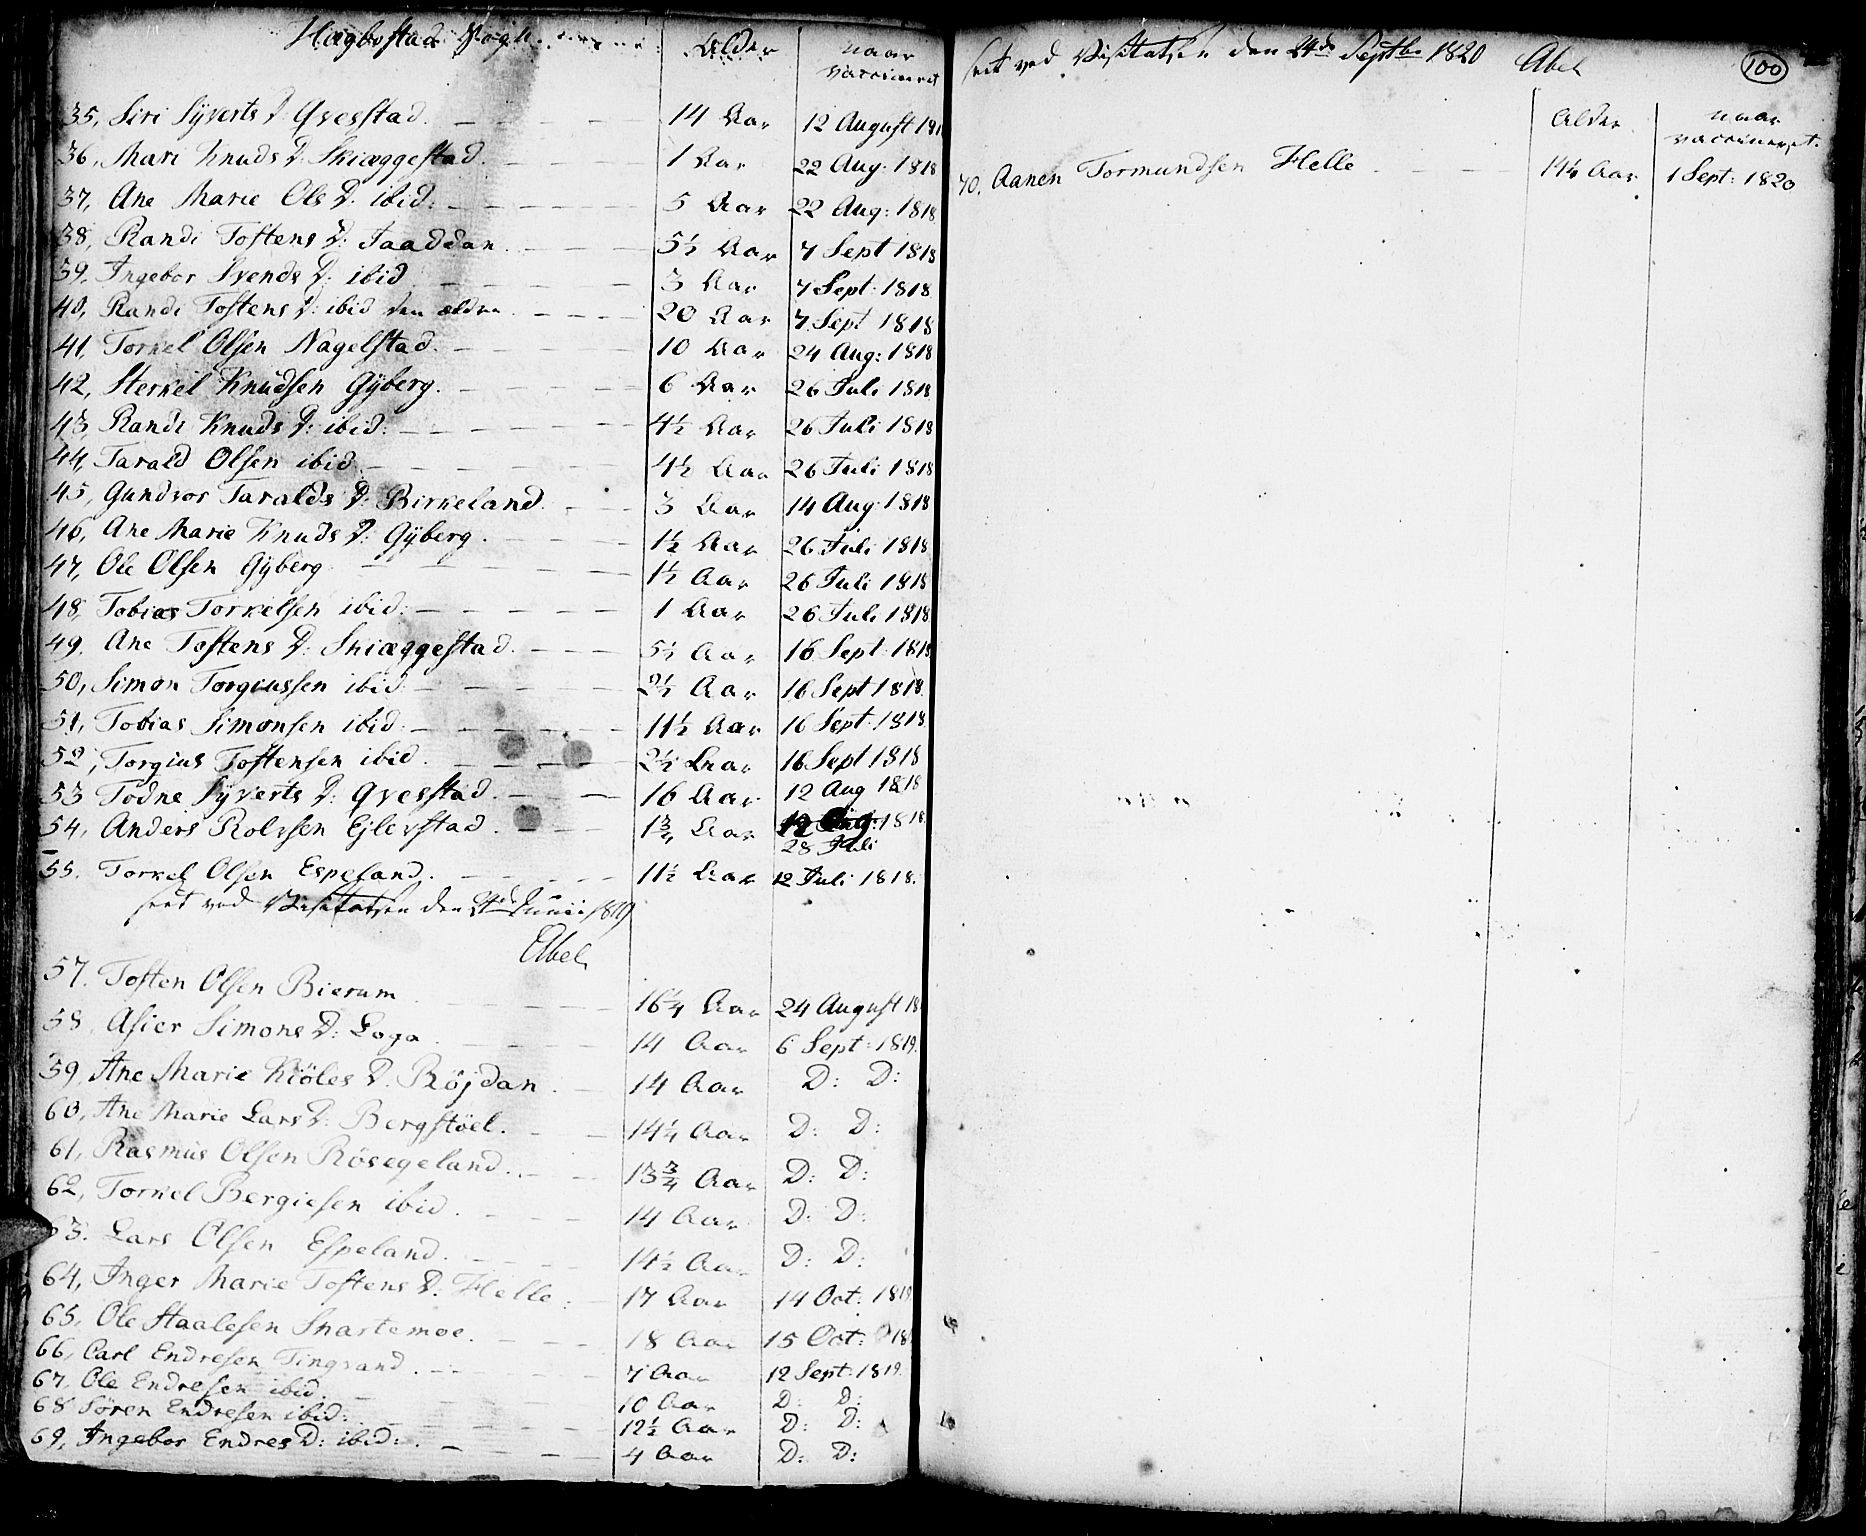 Hægbostad Sogn
Alder
naar vaccineret
35, Siri Syverts D: Qvesstad. 14 Aar 12 August 181
36, Mari Knuds D: Skiæggestad. 1 Aar 22 Aug: 1818
37, Ane Marie Ols D. ibid: 5 Aar 22 Aug: 1818
38, Randi Tostens D: Taaddan. 5½ Aar 7 Sept 1818
39, Ingebor Svends D: ibid 3 Aar 7 Sept: 1818
40, Randi Tostens D: ibid den ældre. 20 Aar 7 Sept 1818
41, Torkel Olsen Nagelstad. 10 Aar 24 Aug: 1818
42, Sterkel Knudsen Gyberg. 6 Aar 26 Juli 1818
43, Randi Knuds D: ibid: 4½ Aar 26 Juli 1818
44, Tarald Olsen ibid. 4½ Aar 26 Juli 1818
45, Gundvor Taralds D: Birkeland. 3 Aar 14 Aug: 1818
46, Ane Marie Knuds D: Gyberg. 1½ Aar 26 Juli 1818
47, Ole Olsen Gyberg 1½ Aar 26 Juli 1818
48, Tobias Torkelsen ibid: 1 Aar 26 Juli 1818
49, Ane Tostens D: Skiæggestad. 5½ Aar 16 Sept: 1818
50, Simon Torgiussen ibid: 2½ Aar 16 Sept 1818.
51, Tobias Simonsen ibid: 11½ Aar 16 Sept: 1818.
52, Torgius Tostensen ibid. 2½ Aar 16 Sept 1818
53 Todne Syverts D: Qvesstad. 16 Aar 12 Aug 1818
54, Anders Rolvsen Ejlevstad. 1¾ Aar 12 Aug: 1818.
28 Juli
55. Torkel Olsen Espeland. 11½ Aar 12 Juli 1818.
seet ved Visitatsen den Junii 1819
Abel
57. Tosten Olsen Bierum 16¼ Aar 24 August 18
58, Asier Simons D: Loga 14 Aar 6 Sept: 1819.
59, Ane Marie Kiöles D. Röjdan. 14 Aar D: D:
60, Ane Marie Lars D: Bergstöel. 14¼ Aar D: D:
61, Rasmus Olsen Rösegeland. 13¾ Aar D: D:
62, Torkel Bergiesen ibid. 14 Aar D: D:
63. Lars Olsen Espeland. 14½ Aar D: D:
64, Inger Marie Tostens D: Helle. 17 Aar 14 Oct: 1819
65, Ole Staalesen Snartemoe. 18 Aar 15 Oct: 18
66, Carl Endresen Tingvand. 7 Aar 12 Sept: 1819.
67, Ole Endresen ibid. 10 Aar D: D:
68 Sören Endresen ibid: 12½ Aar D: D:
69, Ingebor Endres D: ibid: 4 Aar D: D:
seet ved Visitatsen den 24de Septbr 1820 Abel
100
Alder
naar vaccineret.
70. Aanen Tormundsen Helle 14½ Aar 1 Sept: 1820